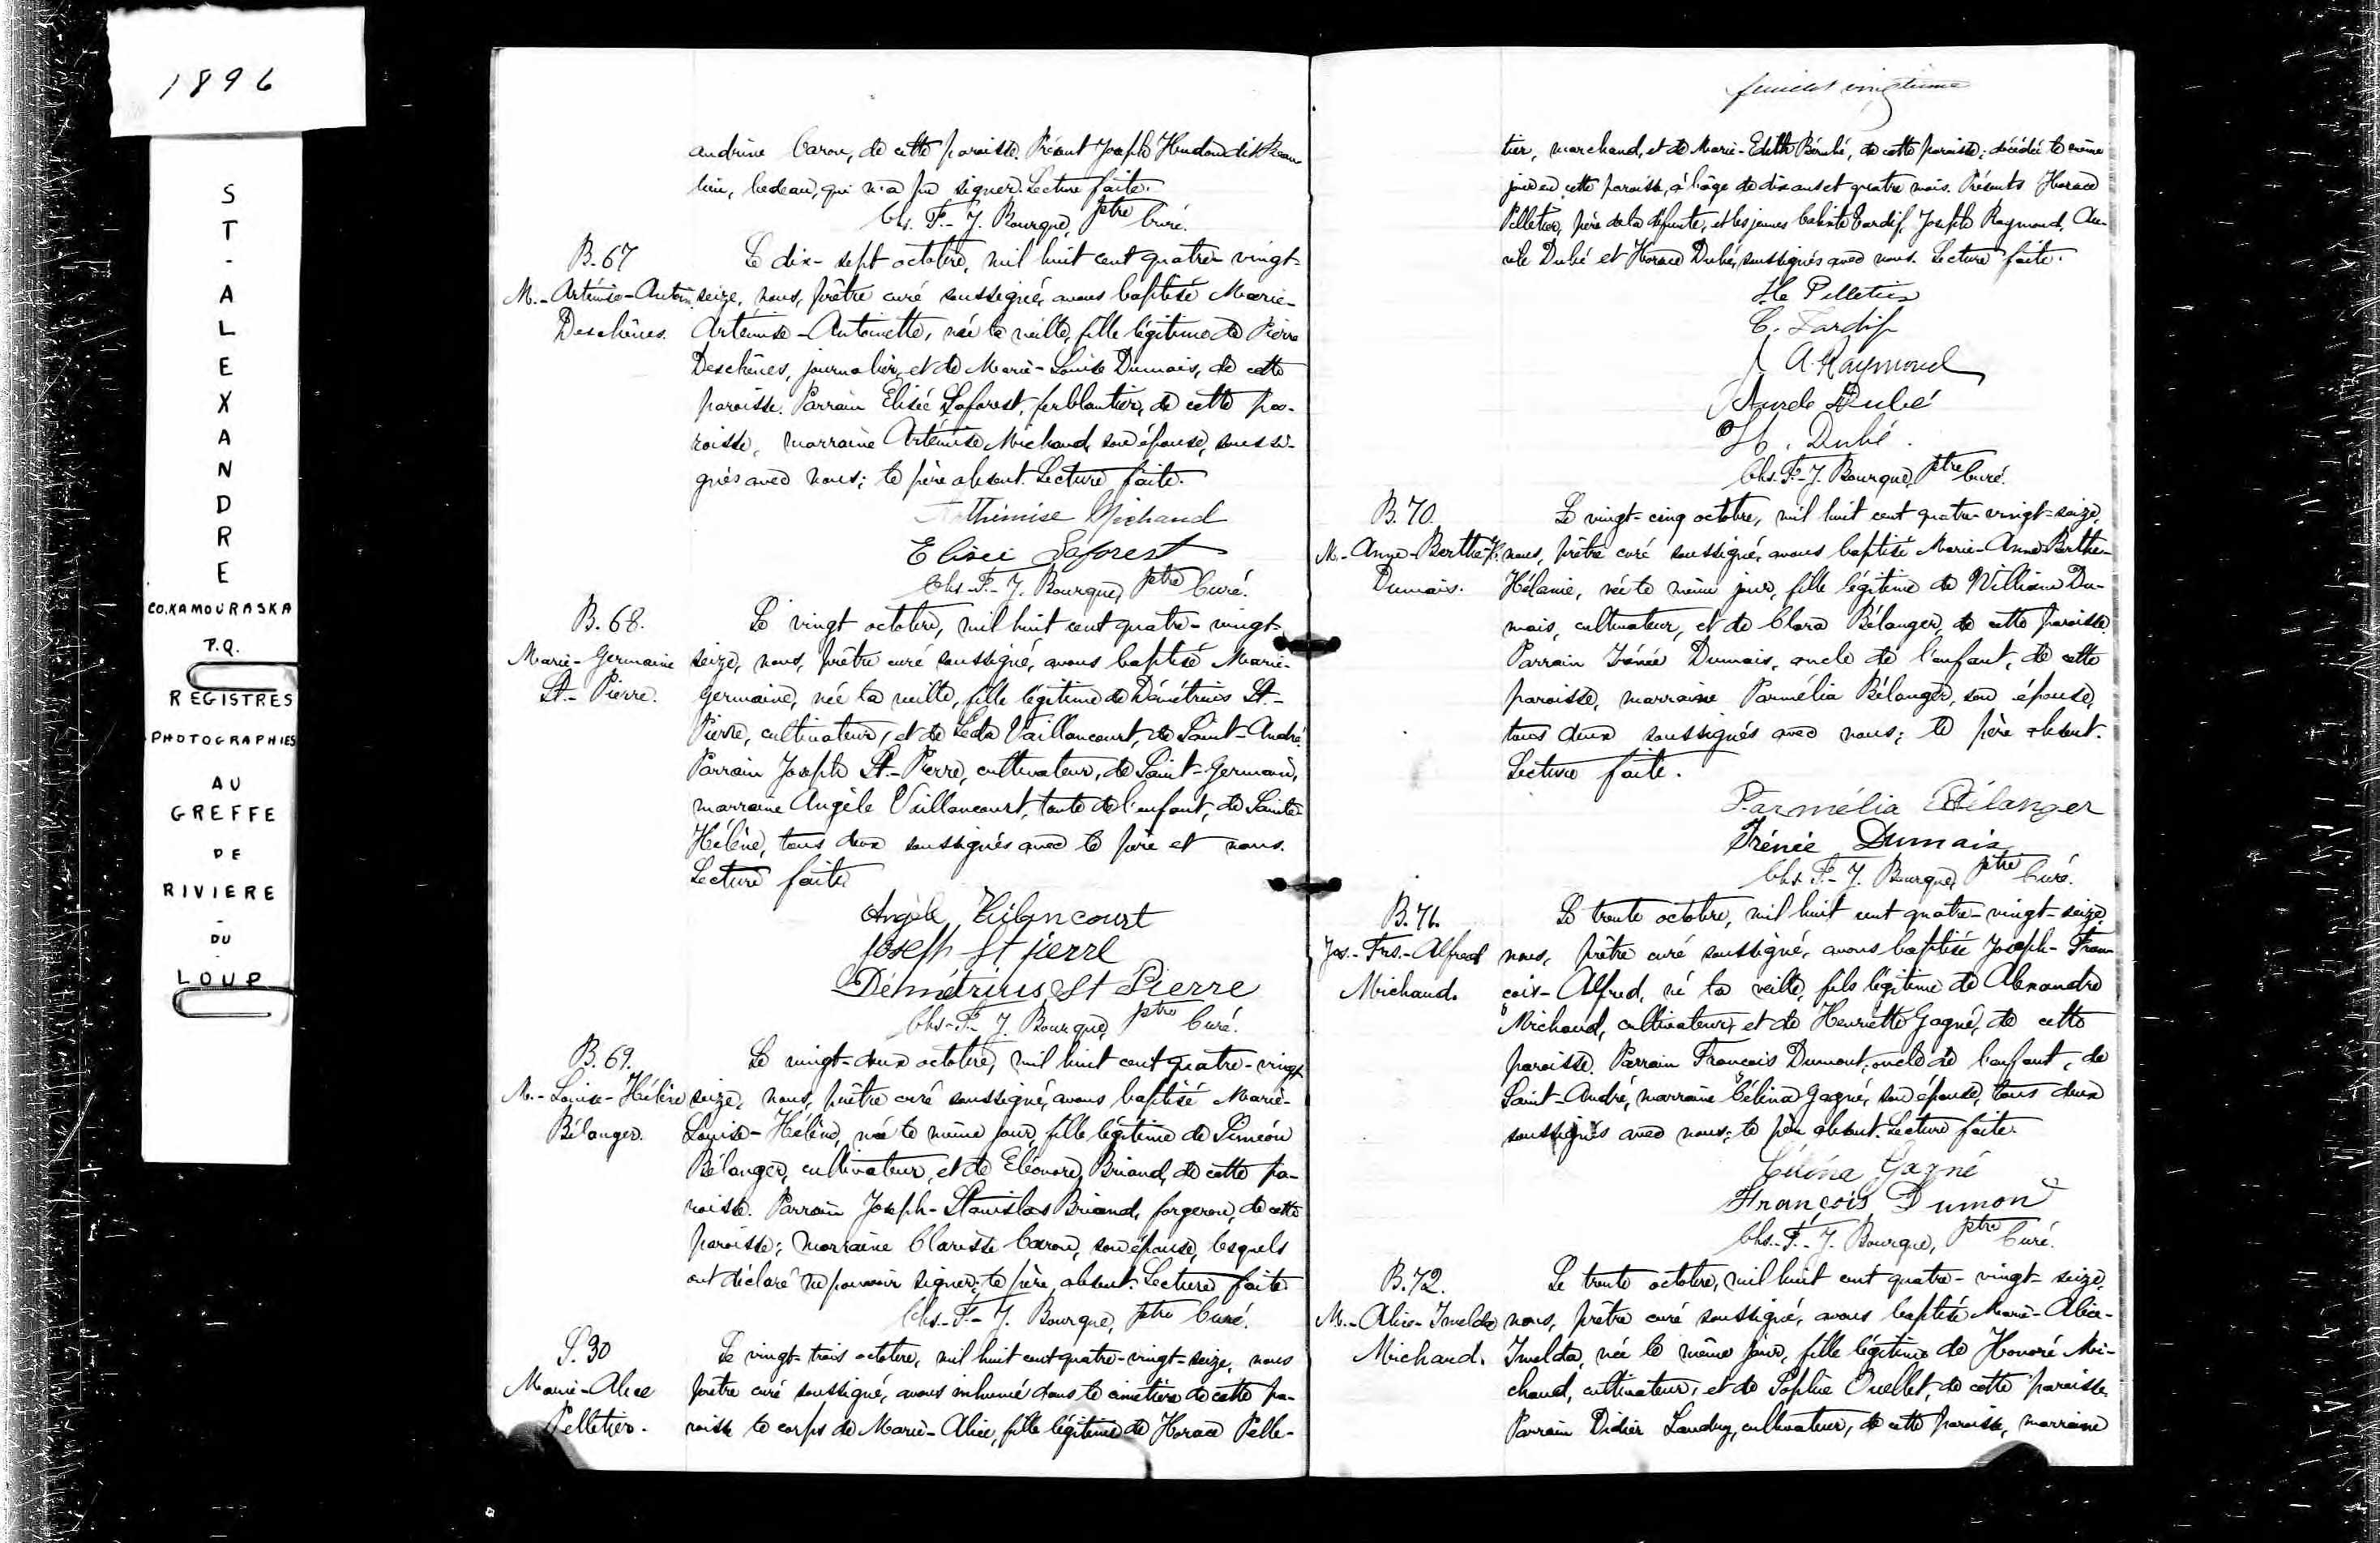 1896
ST-ALEXANDRE
CO.KAMOURASKA
P.Q.
REGISTRES
PHOTOGRAPHIES
AU
GREFFE
DE
RIVIERE
-
DU
-
LOUP
andrine Caron, de cette paroisse. Présent Joseph Hudon dit Beau-
lieu, bedeau, qui n'a pu signer. Lecture faite.
Chs. F.-J. Bourque, ptre Curé.
B. 67
M.-Artémise-Antoin.
Deschênes.
Le dix-sept octobre, mil huit cent quatre-vingt-
seize, nous, prêtre curé soussigné, avons baptisé Marie-
Artémise-Antoinette, née la veille, fille légitime de Pierre
Deschênes, journalier, et de Marie-Louise Dumais, de cette
paroisse. Parrain Elisée Laforest, ferblantier, de cette pa-
roisse, marraine Artémise Michaud, son épouse, soussi-
gnés avec nous; le père absent. Lecture faite.
Arthémise Michaud
Elisée Laforest
Chs.-F.-J. Bourque, ptre Curé.
B. 68.
Marie-Germaine
St-Pierre.
Le vingt octobre, mil huit cent quatre-vingt-
seize, nous, prêtre curé soussigné, avons baptisé Marie-
Germaine, née la veille, fille légitime de Démétrius St.-
Pierre, cultivateur, et de Léda Vaillancourt, de Saint-André.
Parrain Joseph St.-Pierre, cultivateur, de Saint-Germain,
marraine Angèle Vaillancourt, tante de l'enfant, de Sainte-
Hélène, tous deux soussignés avec le père et nous.
Lecture faite.
Angèle
Joseph St pierre
Démétrius St Pierre
Chs-F.-J. Bourque, ptre Curé.
B. 69.
M.-Louise-Hélène
Bélanger.
Le vingt-deux octobre, mil huit cent quatre-vingt
seize, nous, prêtre curé soussigné, avons baptisé Marie-
Louise-Hélène, née le même jour, fille légitime de Siméon
Bélanger, cultivateur, et de Eléonore Briand, de cette pa-
roisse. Parrain Joseph-Stanislas Briand, forgeron, de cette
paroisse; marraine Clarisse Caron, son épouse, lesquels
ont déclaré ne pouvoir signer; le père absent. Lecture faite.
Chs.-F.-J. Bourque, ptre Curé.
S. 30
Marie-Alice
Pelletier.
Le vingt-trois octobre, mil huit cent quatre-vingt-seize, nous
prêtre curé soussigné, avons inhumé dans le cimetière de cette pa-
roisse le corps de Marie-Alice, fille légitime de Horace Pelle-
feuillet vingtième
tier, marchand, et de Marie-Edith Bérubé, de cette paroisse; décédée le même
jour en cette paroisse, à l'âge de dix ans et quatre mois. Présents Horace
Pelletier, père de la défunte, et les jeunes Calixte Tardif, Joseph Raymond, Au-
rèle Dubé et Horace Dubé, soussignés avec nous. Lecture faite.
He Pelletier
C. Tardif
J A. Raymond
Aurele Dubé
H. Dubé.
Chs. F.-J. Bourque, ptre Curé.
B. 70.
M.-Anna-Berthe-H.
Dumais.
Le vingt-cinq octobre, mil huit cent quatre-vingt-seize,
nous, prêtre curé soussigné, avons baptisé Marie-Anna-Berthe-
Hélanie, née le même jour, fille légitime de William Du-
mais, cultivateur, et de Clara Bélanger, de cette paroisse.
Parrain Irénée Dumais, oncle de l'enfant, de cette
paroisse, marraine Parmélia Bélanger, son épouse,
tous deux soussignés avec nous; le père absent.
Lecture faite.
Parmélia Bélanger
Irénée Dumais
Chs. F.-J. Bourque, ptre Curé.
B. 71.
Jos.-Frs.-Alfred
Michaud.
Le trente octobre, mil huit cent quatre-vingt-seize,
nous, prêtre curé soussigné, avons baptisé Joseph-Fran-
çois-Alfred, né la veille, fils légitime de Alexandre
Michaud, cultivateur, et de Henriette Gagné, de cette
paroisse. Parrain François Dumont, oncle de l'enfant, de
Saint-André, marraine Célina Gagné, son épouse, tous deux
soussignés avec nous; le père absent. Lecture faite.
Célina Gagné
François Dumon
Chs.-F.-J. Bourque, ptre Curé.
B. 72.
M.-Alice-Imelda
Michaud.
Le trente octobre, mil huit cent quatre-vingt-seize,
nous, prêtre curé soussigné, avons baptisé Marie-Alice-
Imelda, née le même jour, fille légitime de Honoré Mi-
chaud, cultivateur, et de Sophie Ouellet, de cette paroisse.
Parrain Didier Landry, cultivateur, de cette paroisse, marraine